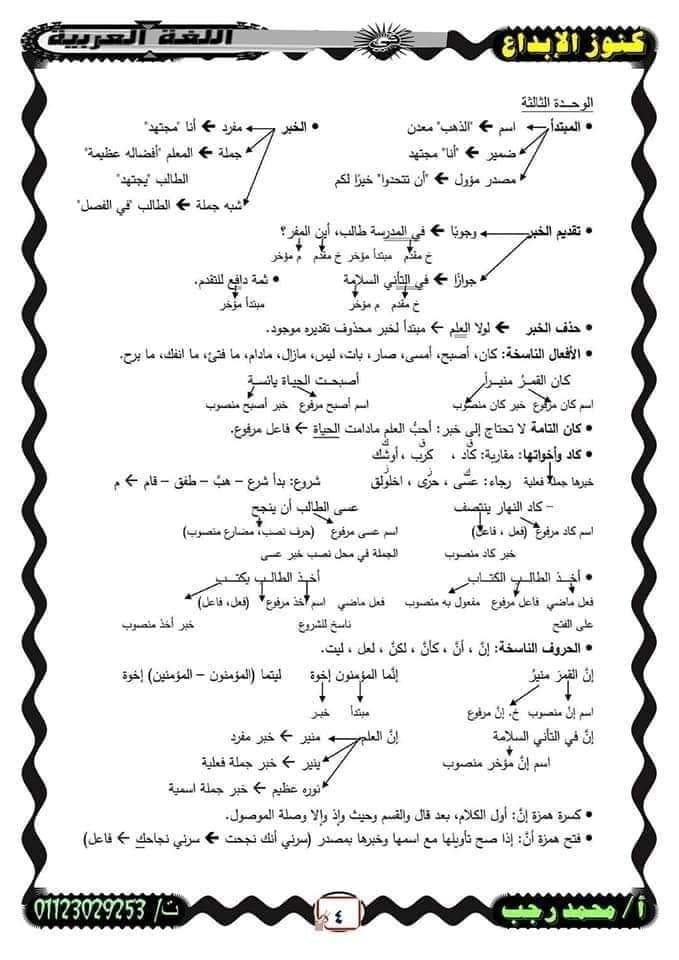 كنوز الإبداع
اللغة العربية
الوحدة الثالثة
• المبتدأ اسم ← "الذهب" معدن
ضمير ← "أنا" مجتهد
مصدر مؤول ← "أن تتحدوا" خيرًا لكم
• الخبر مفرد ← أنا "مجتهد"
جملة ← المعلم "أفضاله عظيمة"
الطالب "يجتهد"
شبه جملة ← الطالب "في الفصل"
• تقديم الخبر وجوبًا ← في المدرسة طالب، أين المفر؟
خ مقدم مبتدأ مؤخر خ مقدم م مؤخر
جوازًا ← في التأني السلامة • ثمة دافع للتقدم.
خ مقدم م مؤخر مبتدأ مؤخر
• حذف الخبر ← لولا العلم ← مبتدأ لخبر محذوف تقديره موجود.
• الأفعال الناسخة: كان، أصبح، أمسى، صار، بات، ليس، مازال، مادام، ما فتئ، ما انفك، ما برح.
كان القمرُ منيراً أصبحت الحياة يائسة
اسم كان مرفوع خبر كان منصوب اسم أصبح مرفوع خبر أصبح منصوب
• كان التامة لا تحتاج إلى خبر: أحبُّ العلم مادامت الحياة ← فاعل مرفوع.
• كاد وأخواتها: مقاربة: كاد ، كرب ، أوشك
خبرها جملة فعلية رجاء: عسى ، حرى ، اخلولق شروع: بدأ شرع – هبَّ – طفق – قام ← م
– كاد النهار ينتصف عسى الطالب أن ينجح
اسم كاد مرفوع (فعل ، فاعل) اسم عسى مرفوع (حرف نصب، مضارع منصوب)
خبر كاد منصوب الجملة في محل نصب خبر عسى
• أخذ الطالب الكتاب أخذ الطالب يكتب
فعل ماضي فاعل مرفوع مفعول به منصوب فعل ماضي اسم أخذ مرفوع (فعل، فاعل)
على الفتح ناسخ للشروع خبر أخذ منصوب
• الحروف الناسخة: إنَّ ، أنَّ ، كأنَّ ، لكنَّ ، لعل ، ليت.
إنَّ القمرَ منيرُ إنَّما المؤمنون إخوة ليتما (المؤمنون – المؤمنين) إخوة
اسم إنَّ منصوب خ. إنَّ مرفوع مبتدأ خبر
إنَّ في التأني السلامة إنَّ العلم منير ← خبر مفرد
اسم إنَّ مؤخر منصوب ينير ← خبر جملة فعلية
نوره عظيم ← خبر جملة اسمية
• كسرة همزة إنَّ: أول الكلام، بعد قال والقسم وحيث وإذ وإلا وصلة الموصول.
• فتح همزة أنَّ: إذا صح تأويلها مع اسمها وخبرها بمصدر (سرني أنك نجحت ← سرني نجاحك ← فاعل)
أ/ محمد رجب
٤
ت/ 01123029253